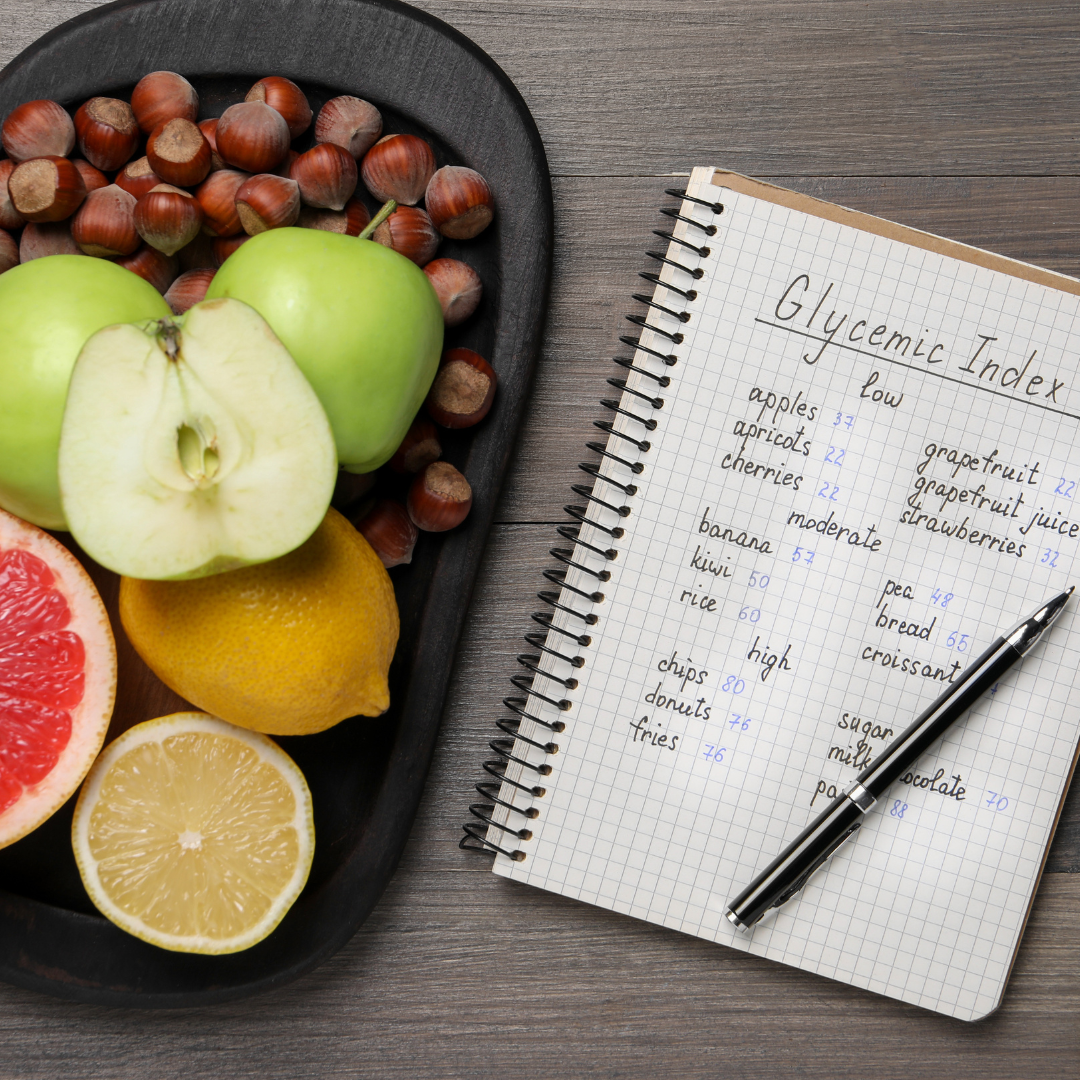 Glycemic Index
low
apples 37
apricots 22
cherries 22
grapefruit 22
grapefruit juice
strawberries 32
moderate
banana 57
kiwi 50
rice 60
pea 48
bread 65
croissant
high
chips 80
donuts 76
fries 76
sugar
milk 70
88